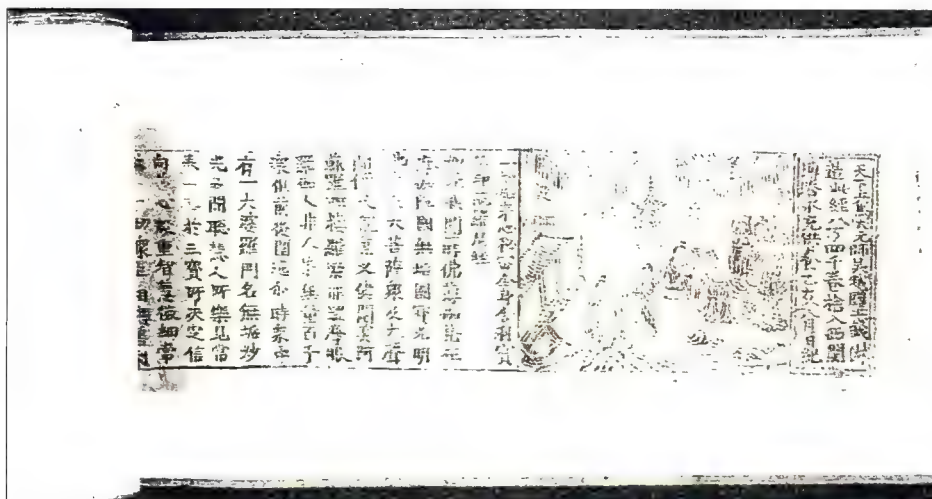 天下兵馬大元帥吳越國王錢俶
造此經八万四千卷捨入西關
塼塔永充供養乙亥八月日紀
一切如來心秘密全身舍利寶
篋印陀羅尼經
如是我聞一時佛薄伽梵在
摩伽陀國無垢園寶光明
池中與大菩薩衆及大聲
聞僧天龍藥叉健闥婆阿
蘇羅迦樓羅緊那羅摩睺
羅伽人非人等無量百千
衆俱前後圍遶爾時衆中
有一大婆羅門名無垢妙
光多聞聰慧人所樂見常
奉十善於三寶所決定信
向善心殷重智慧微細常
一切衆生